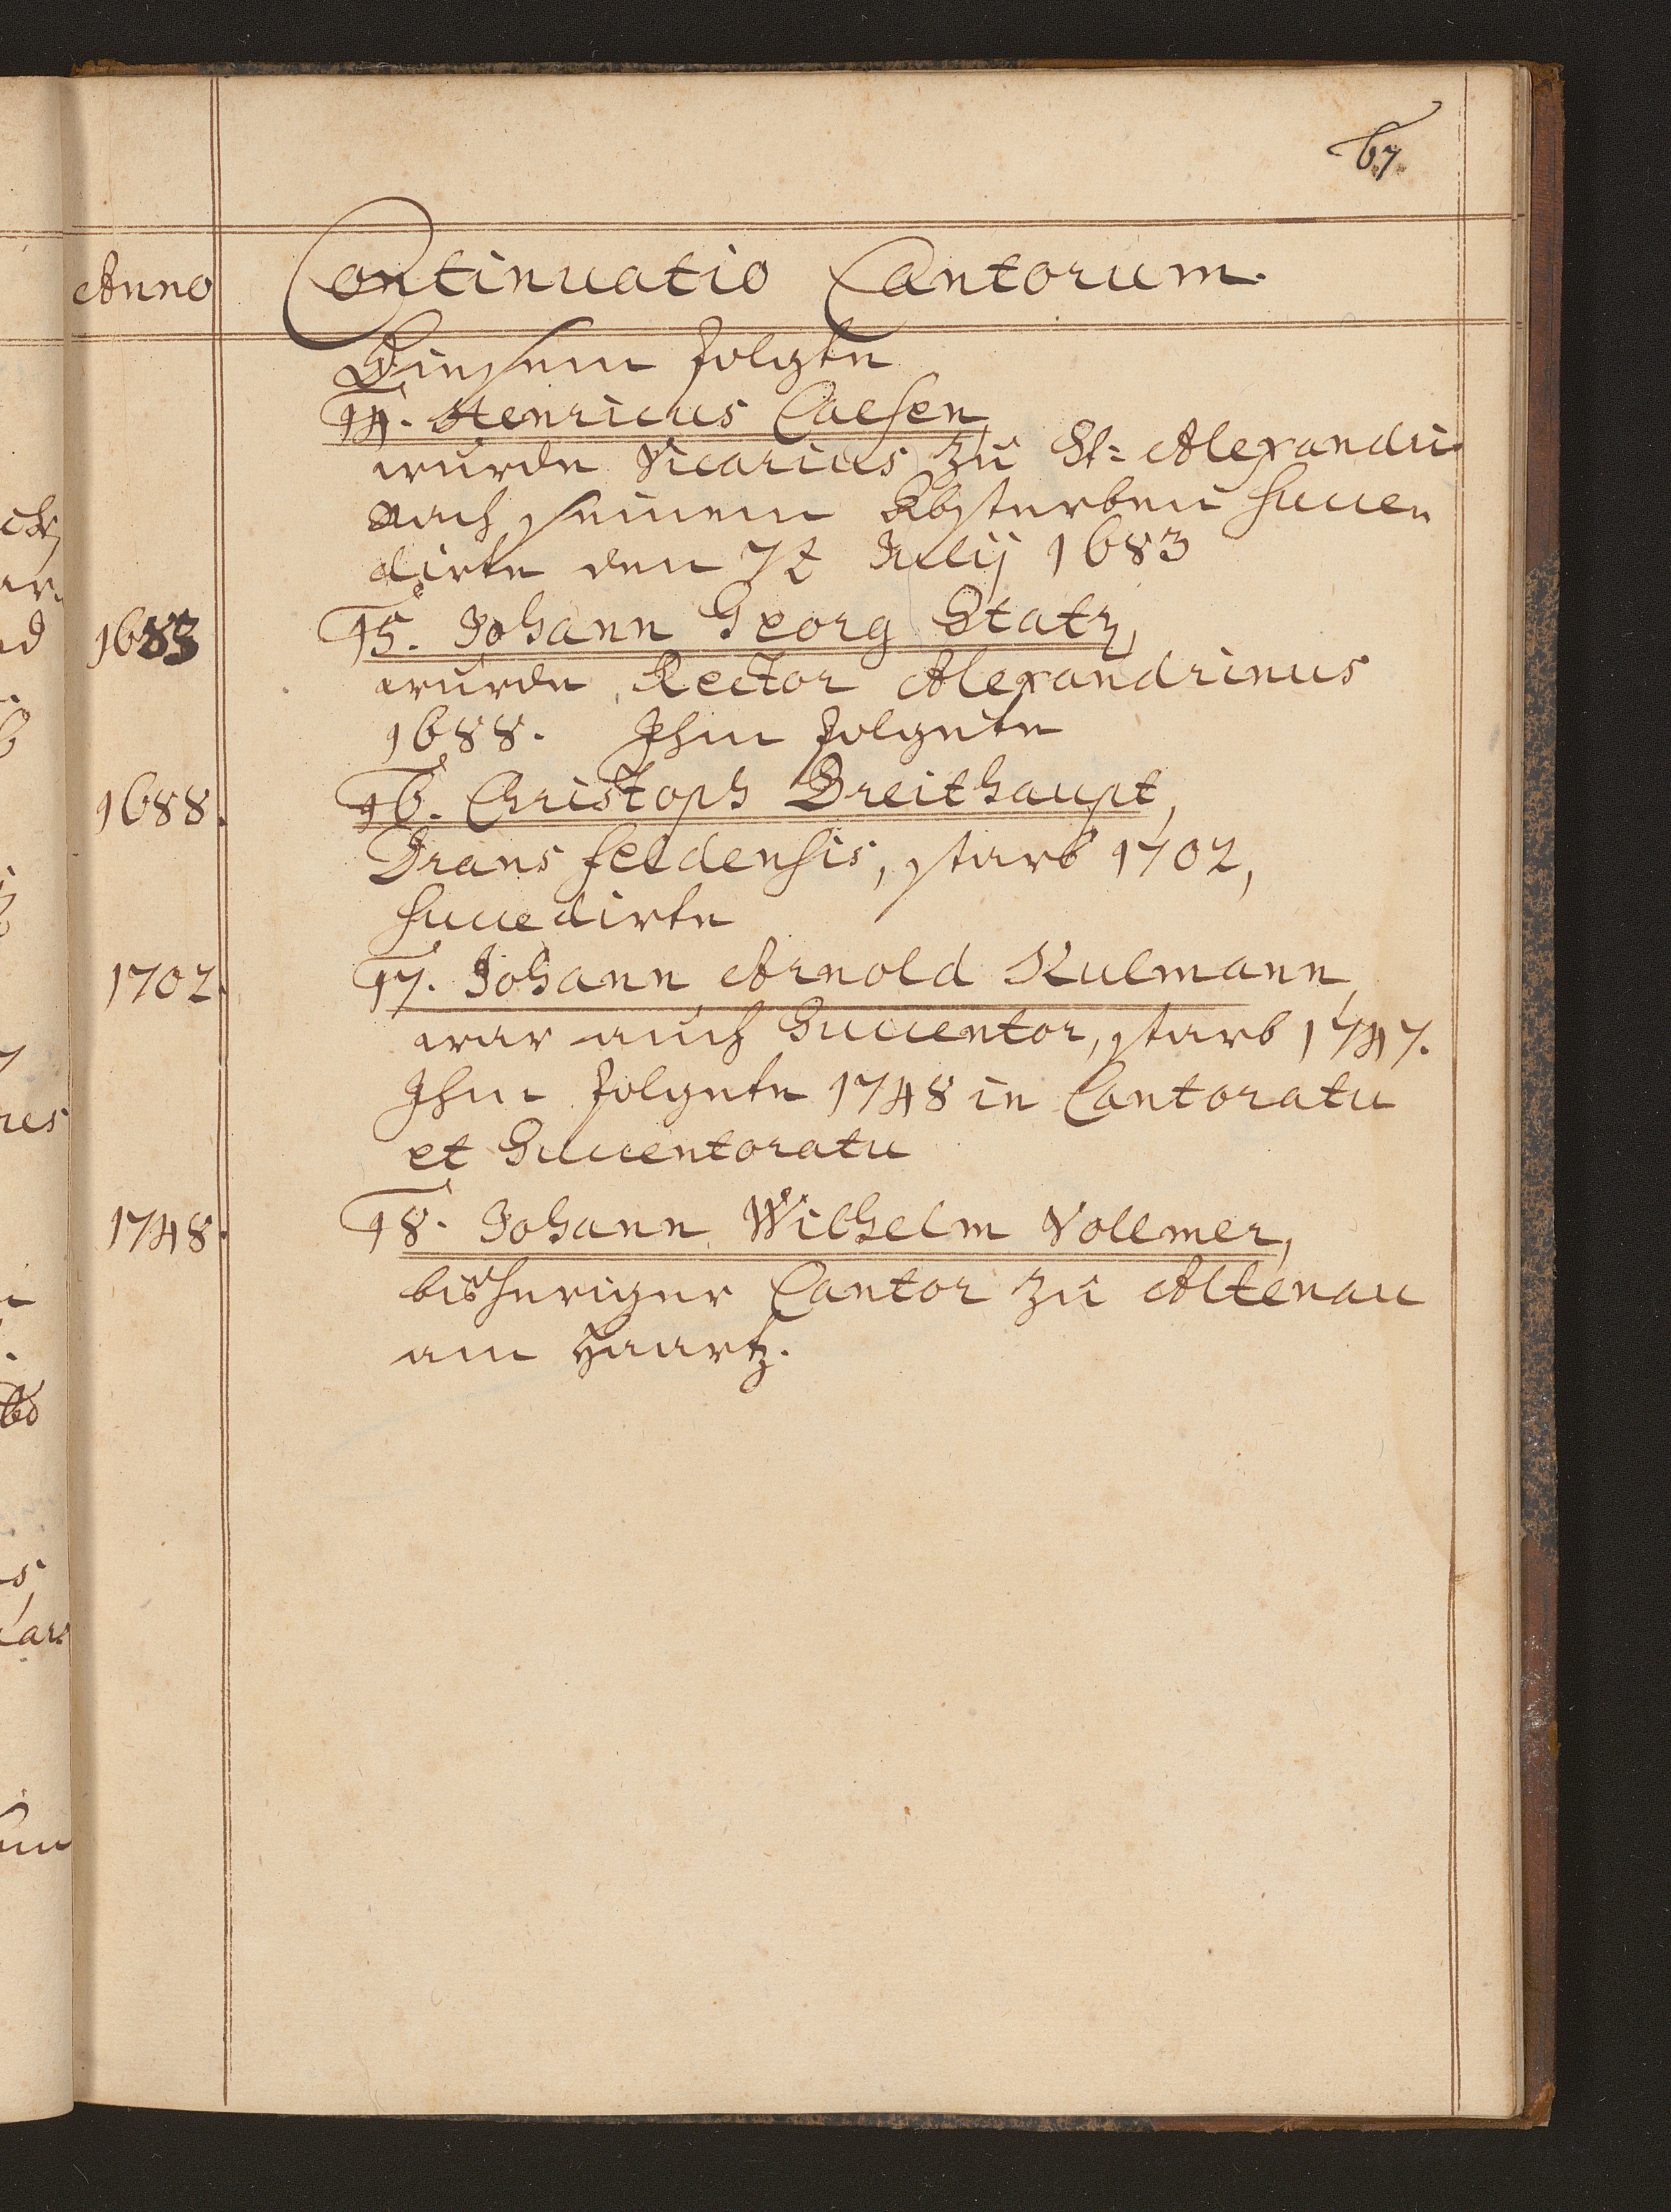 67.
Anno Continuatio Cantorum.
Diesem folgte
14. Henricus Caesen,
wurde Vicarius zu St: Alexandri
nach seinem Absterben succe-
dirte den 7t Julij 1683
1683 15. Johann Georg Statz,
wurde Rector Alexandrinus
1688. Ihm folgete
1688. 16. Christoph Breithaupt,
Dransfeldensis, starb 1702,
succedirte
1702. 17. Johann Arnold Kulmann,
war auch Succentor, starb 1747.
Ihm folgete 1748 in Cantoratu
et Succentoratu
1748. 18. Johann Wilhelm Vollmer,
bisheriger Cantor zu Altenau
am Haartz.